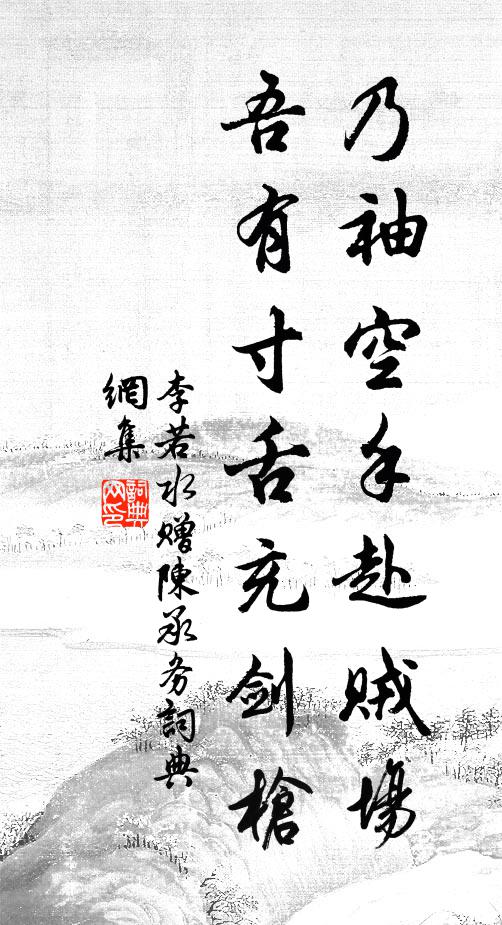 乃袖空手赴賊場
吾有寸舌充劍槍
李若水贈陳承务詞典
網集
詞典
网印